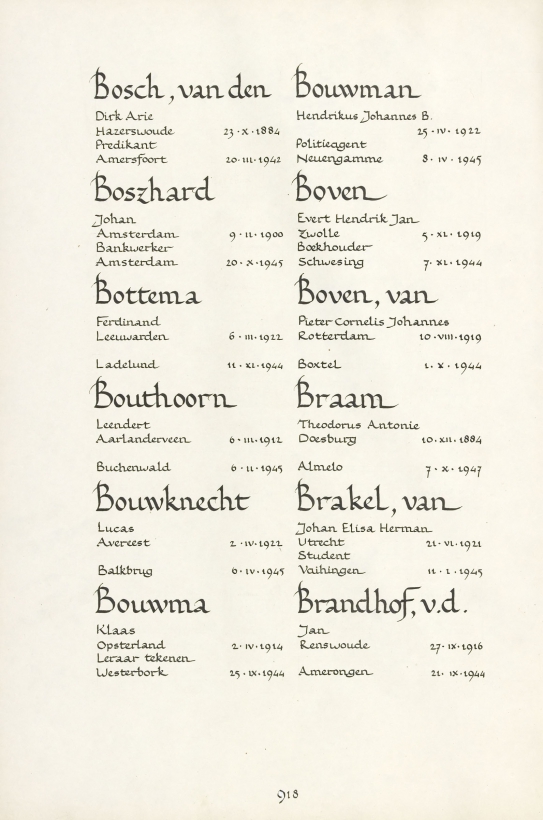 Bosch, van den
Dirk Arie
Hazerswoude 23·X·1884
Predikant
Amersfoort 20·III·1942
Boszhard
Johan
Amsterdam 9·II·1900
Bankwerker
Amsterdam 20·X·1945
Bottema
Ferdinand
Leeuwarden 6·III·1922
Ladelund 11·XI·1944
Bouthoorn
Leendert
Aarlanderveen 6·III·1912
Buchenwald 6·II·1945
Bouwknecht
Lucas
Avereest 2·IV·1922
Balkbrug 6·IV·1945
Bouwma
Klaas
Opsterland 2·IV·1914
Leraar tekenen
Westerbork 25·IX·1944
Bouwman
Hendrikus Johannes B.
25·IV·1922
Politieagent
Neuengamme 8·IV·1945
Boven
Evert Hendrik Jan
Zwolle 5·XI·1919
Boekhouder
Schwesing 7·XI·1944
Boven, van
Pieter Cornelis Johannes
Rotterdam 10·VIII·1919
Boxtel 1·X·1944
Braam
Theodorus Antonie
Doesburg 10·XII·1884
Almelo 7·X·1947
Brakel, van
Johan Elisa Herman
Utrecht 21·VI·1921
Student
Vaihingen 11·I·1945
Brandhof, v.d.
Jan
Renswoude 27·IX·1916
Amerongen 21·IX·1944
918